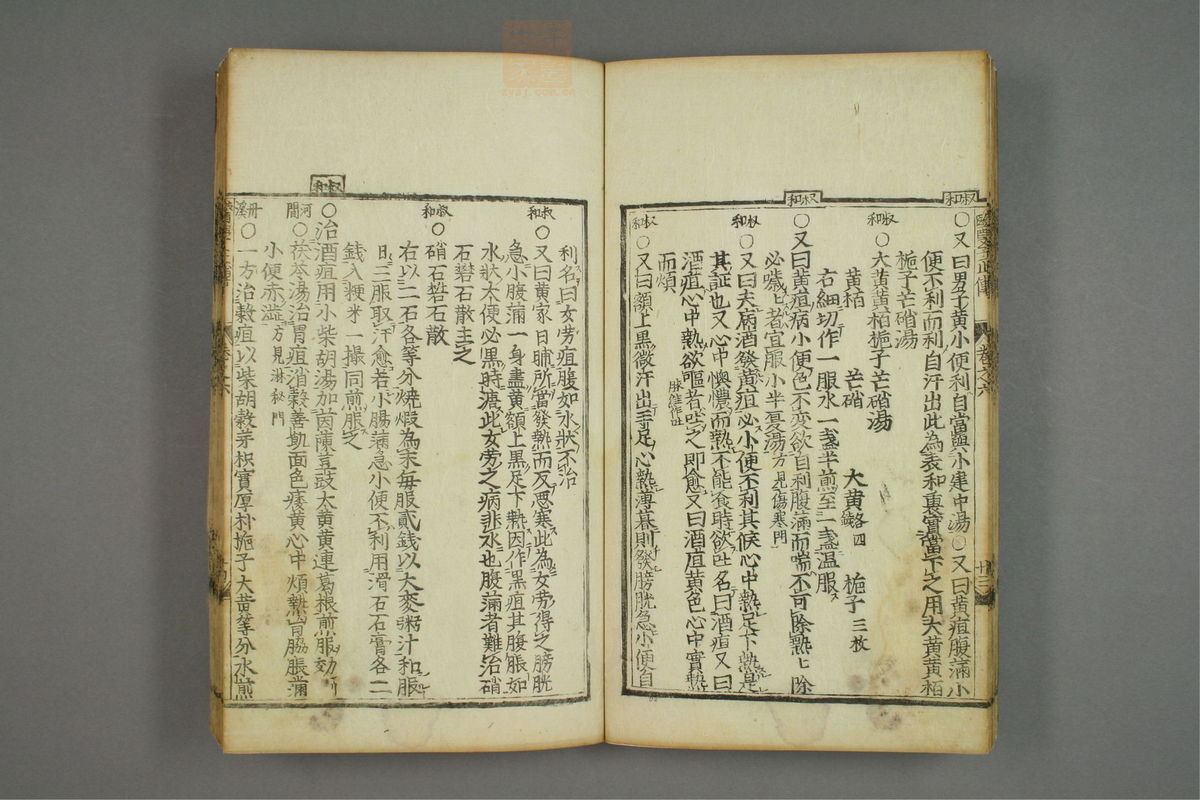 叔和
○又曰男子黃小便利自當與小建中湯○又曰黃疸腹滿小
便不利而利自汗出此為表和裏實當下之用大黃黃栢
梔子芒硝湯
叔和
○大黃黃栢梔子芒硝湯
黃栢 芒硝 大黃各四錢 梔子三枚
右細切作一服水一盞半煎至一盞溫服
叔和
○又曰黃疸病小便色不變欲自利腹滿而喘不可除熱ヒ除
必噦ヒ者宜服小半夏湯方見傷寒門
叔和
○又曰夫病酒發黃疸必小便不利其候心中熱足下熱是
其証也又心中懊憹而熱不能食時欲吐名曰酒疸又曰
酒疸心中熱欲嘔者吐之即愈又曰酒疸黃色心中實熱
而煩
叔和
○又曰額上黑微汗出手足心熱薄暮則發膀胱急小便自
利名曰女勞疸腹如水狀不治
叔和
○又曰黃家日晡所當發熱而反惡寒此為女勞得之膀胱
急小腹滿一身盡黃額上黑足下熱因作黑疸其腹脹如
水狀大便必黑時溏此女勞之病非水也腹滿者難治硝
石礬石散主之
叔和
○硝石礬石散
右以二石各等分燒煅為末每服貳錢以大麥粥汁和服
日三服取汗愈若小腸滿急小便不利用滑石石膏各二
錢入粳米一撮同煎服之
叔和
○治酒疸用小柴胡湯加茵蔯豆豉大黃黃連葛根煎服効
河間
○茯苓湯治胃疸消穀善飢面色痿黃心中煩熱胷脇脹滿
小便赤澁方見淋秘門
丹溪
○一方治穀疸以柴胡穀芽枳實厚朴梔子大黃等分水煎